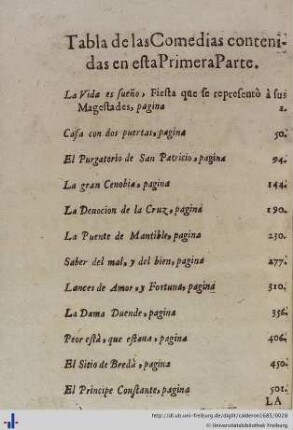 Tabla de las Comedias conteni-
das en esta Primera Parte.
La Vida es sueño, Fiesta que se representò à sus
Magestades, pagina 1.
Casa con dos puertas, pagina 50.
El Purgatorio de San Patricio, pagina 94.
La gran Cenobia, pagina 144.
La Deuocion de la Cruz, pagina 190.
La Puente de Mantible, pagina 230.
Saber del mal, y del bien, pagina 277.
Lances de Amor, y Fortuna, pagina 310.
La Dama Duende, pagina 356.
Peor està, que estaua, pagina 406.
El Sitio de Bredà, pagina 450.
El Principe Constante, pagina 501.
LA
http://dl.ub.uni-freiburg.de/diglit/calderon1685/0028
© Universitätsbibliothek Freiburg